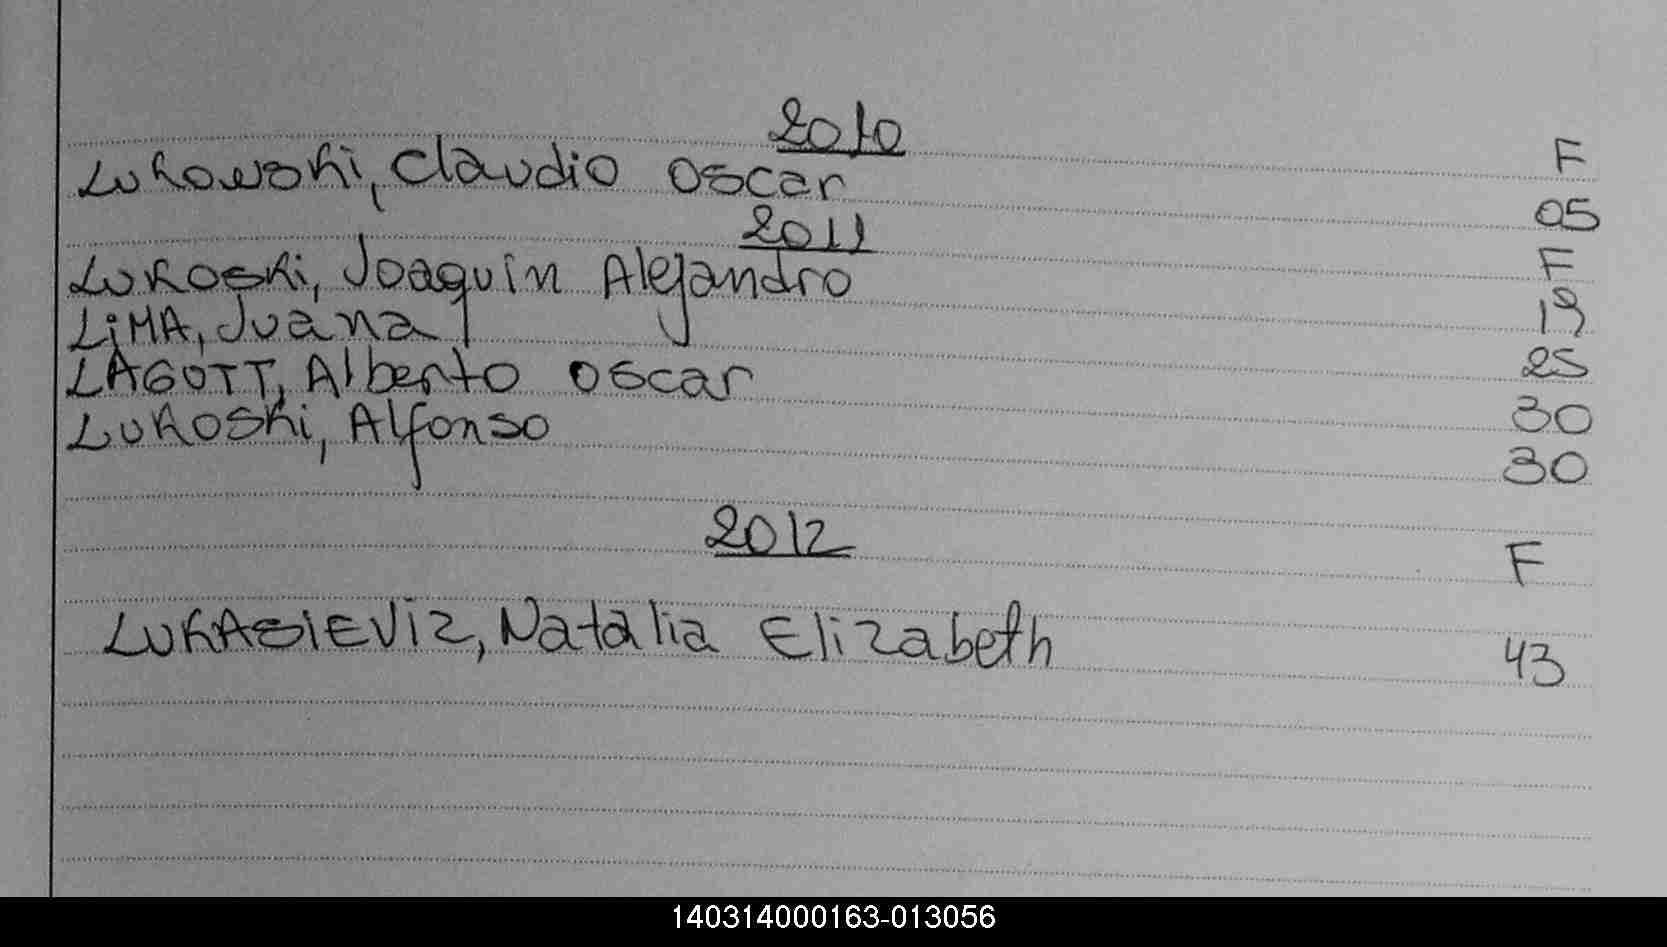 2010 F
Lukowski, Claudio Oscar 05
2011 F
Lukoski, Joaquín Alejandro 19
LiMA, Juana 25
LAGOTT, Alberto Oscar 30
Lukoski, Alfonso 30
2012 F
LUKASIEViz, Natalia Elizabeth 43
140314000163-013056